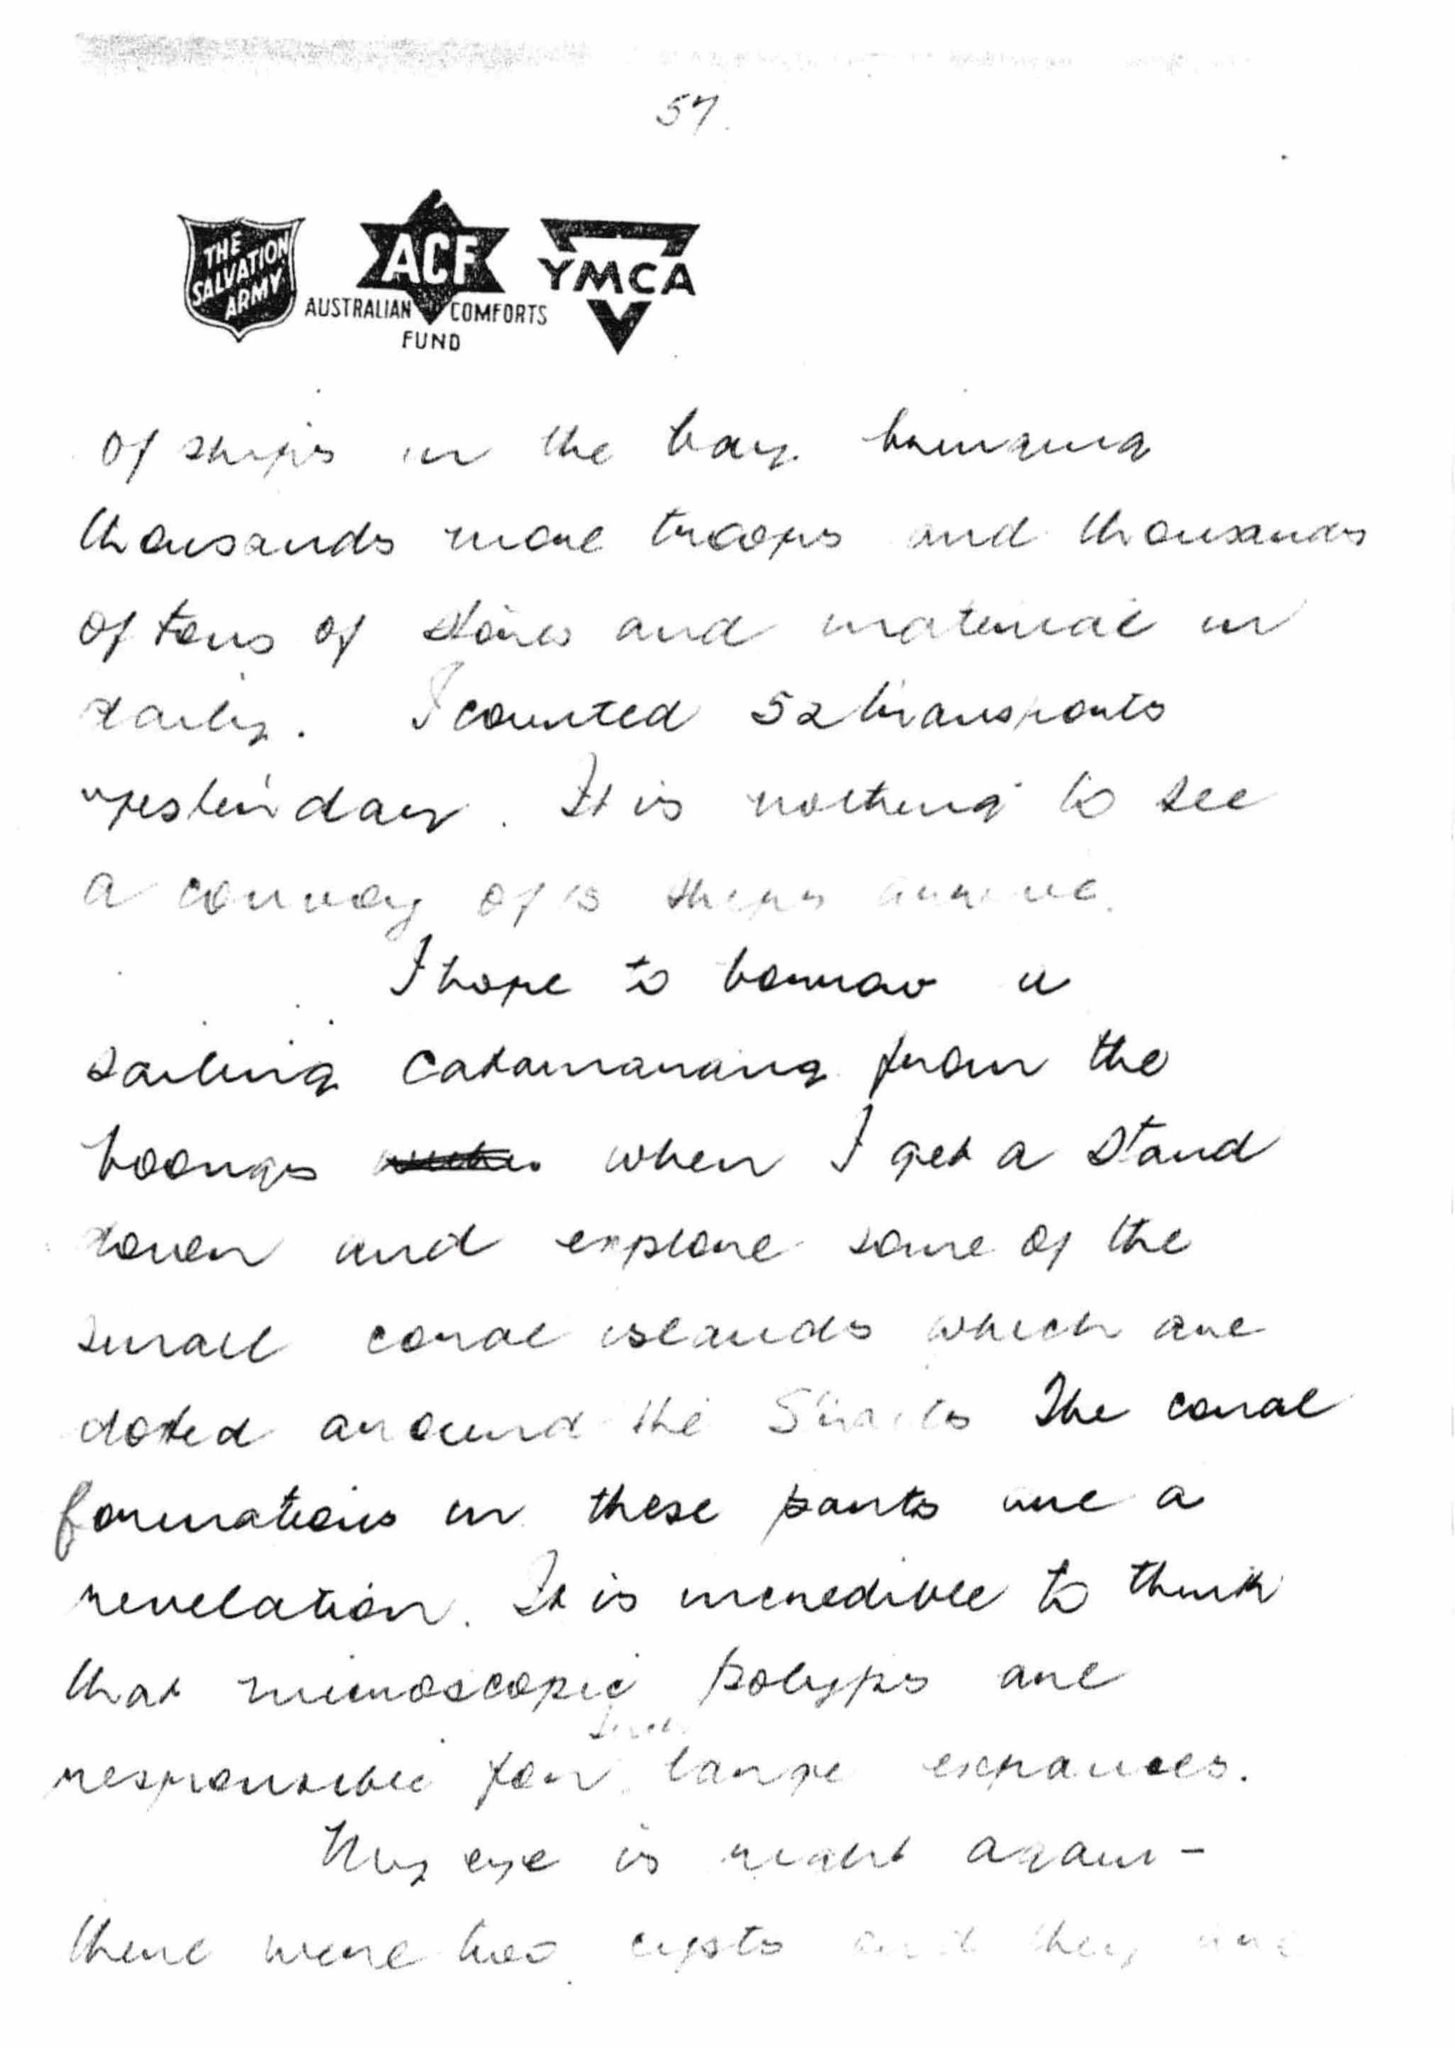 57.
THE SALVATION ARMY
ACF
AUSTRALIAN COMFORTS FUND
YMCA
of ships in the bay bringing
thousands more troops and thousands
of tons of stores and material in
daily. I counted 52 transports
yesterday. It is nothing to see
a convoy of 15 ships arrive.
I hope to borrow a
sailing catamarang from the
boongs when I get a stand
down and explore some of the
small coral islands which are
doted around the Straits The coral
formations in these parts are a
revelation. It is incredible to think
that microscopic polyps are
such
responsible for large expances.
My eye is right again -
there were two cysts and they are